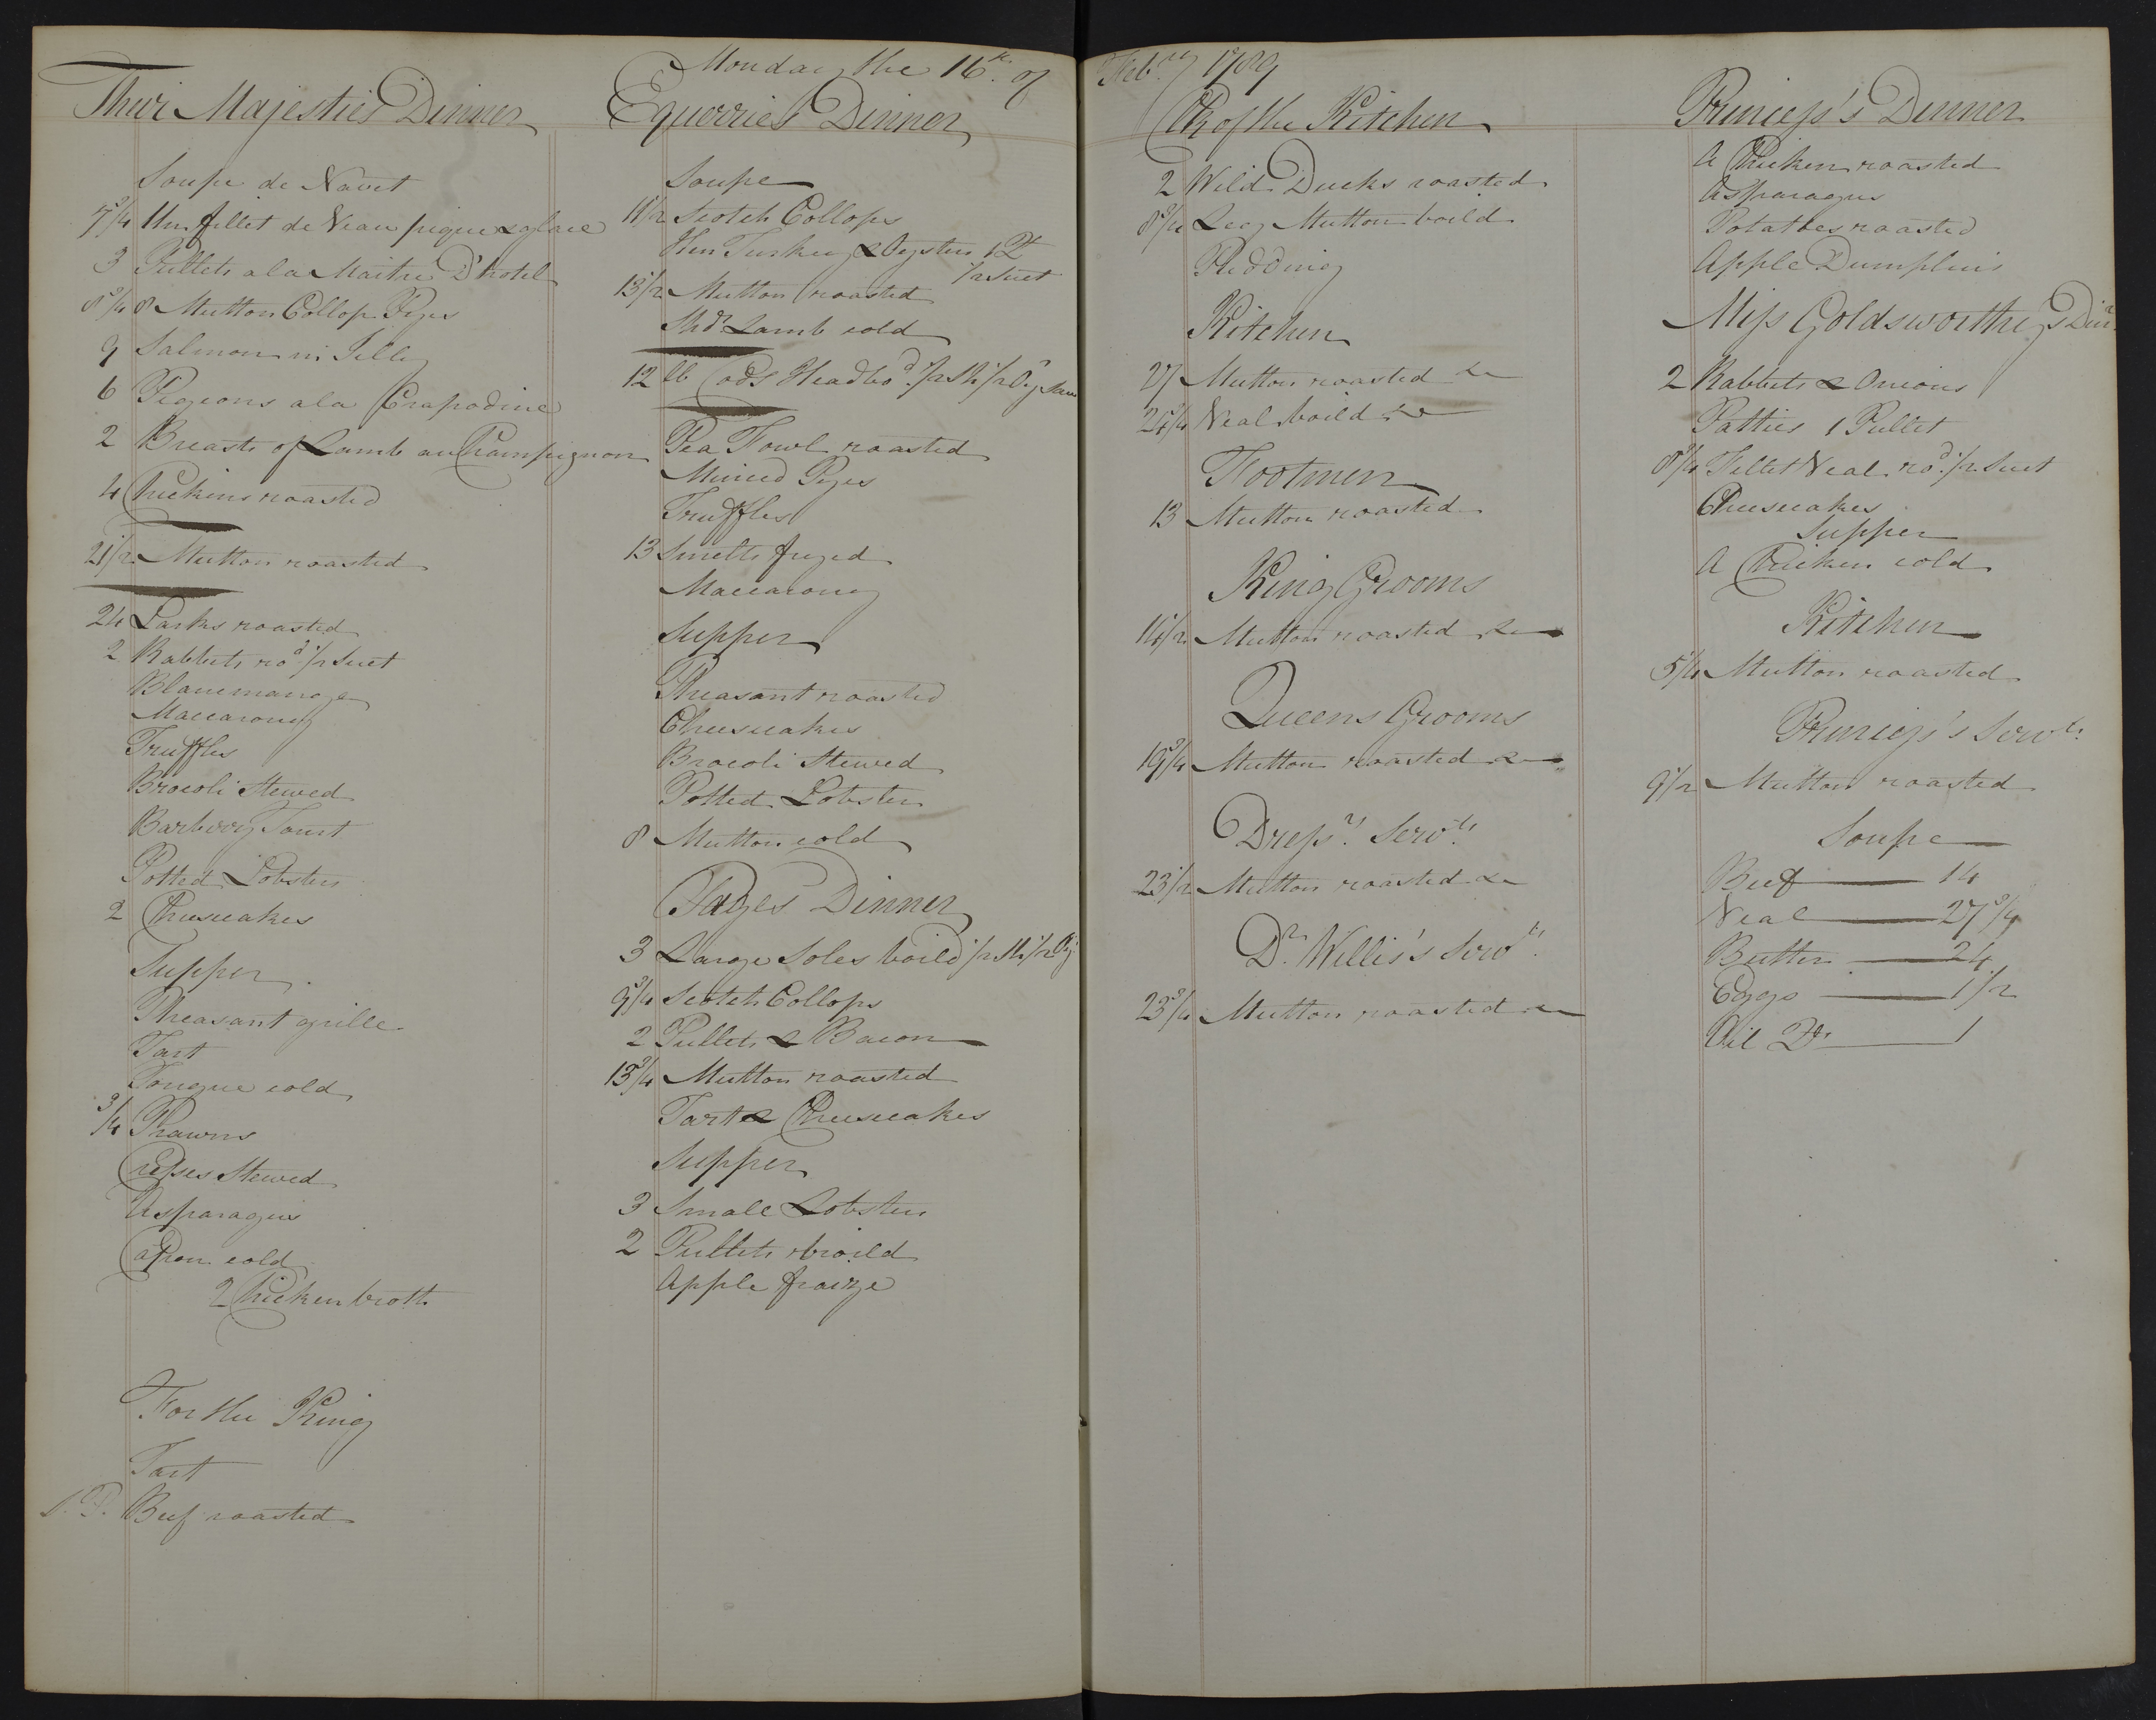 Monday the 16th of Febry 1789
Their Majesties Dinner
Soupe de Navet
7 3/4 Un fillet de Veau pique & glace
3 Pullets a la Maitre D'hotel
8 3/4 8 Mutton Collop Pyes
9 Salmon in Jelly
6 Pigeons a la Crapodine
2 Breasts of Lamb au Champignon
4 Chickins roasted
21 1/2 Mutton roasted
24 Larks roasted
2 Rabbets rod 1/2 Suet
Blancmange
Maccarony
Truffles
Brocoli Stewed
Barbery Tourt
Potted Lobster
2 Cheescakes
Supper
Pheasant grille
Tart
Tongue cold
3/4 Prawns
Crepses Stewed
Asparagus
Capon cold
2 Chicken broth
For the King
Tart
S. P. Beef roasted
Equerries Dinner
Soupe
11 1/2 Scotch Collops
Hen Turkey & Oysters 1 Pt
1/2 Suet
13 1/2 Mutton roasted
Shdr Lamb cold
12 lb Cods Head bod 1/2 Sh 1/2 Oy Sauce
Pea Fowl roasted
Minced Pyes
Truffles
13 Smelts fryed
Maccarony
Supper
Pheasant roasted
Cheescakes
Brocoli Stewed
Potted Lobster
8 Mutton cold
Pages Dinner
3 Large Soles boild 1/2 Sh 1/2 Oy
9 3/4 Scotch Collops
2 Pullets & Bacon
13 3/4 Mutton roasted
Tart & Cheescakes
Supper
3 Small Lobsters
2 Pullets broild
Apple fraize
Ck of the Kitchen
2 Wild Ducks roasted
8 3/4 Leg Mutton boild
Pudding
Kitchen
27 Mutton roasted &c
24 3/4 Veal boild &c
Footmen
13 Mutton roasted
King Grooms
14 1/2 Mutton roasted &c
Queens Grooms
19 3/4 Mutton roasted &c
Dressrs Servts
23 1/2 Mutton roasted &c
Dr Willis's Servts
23 3/4 Mutton roasted &c
Princess's Dinner
A Chicken roasted
Asparagus
Potatoes roasted
Apple Dumplins
Miss Goldsworthey's Dinr
2 Rabbets & Onions
Patties 1 Pullet
8 3/4 Fillet Veal rod 1/2 Suet
Cheescakes
Supper
A Chicken cold
Kitchen
5 1/4 Mutton roasted
Princess's Servts
9 1/2 Mutton roasted
Soupe
Beef 14
Veal 27 3/4
Butter 24
Eggs 1 1/2
Oil Do 1